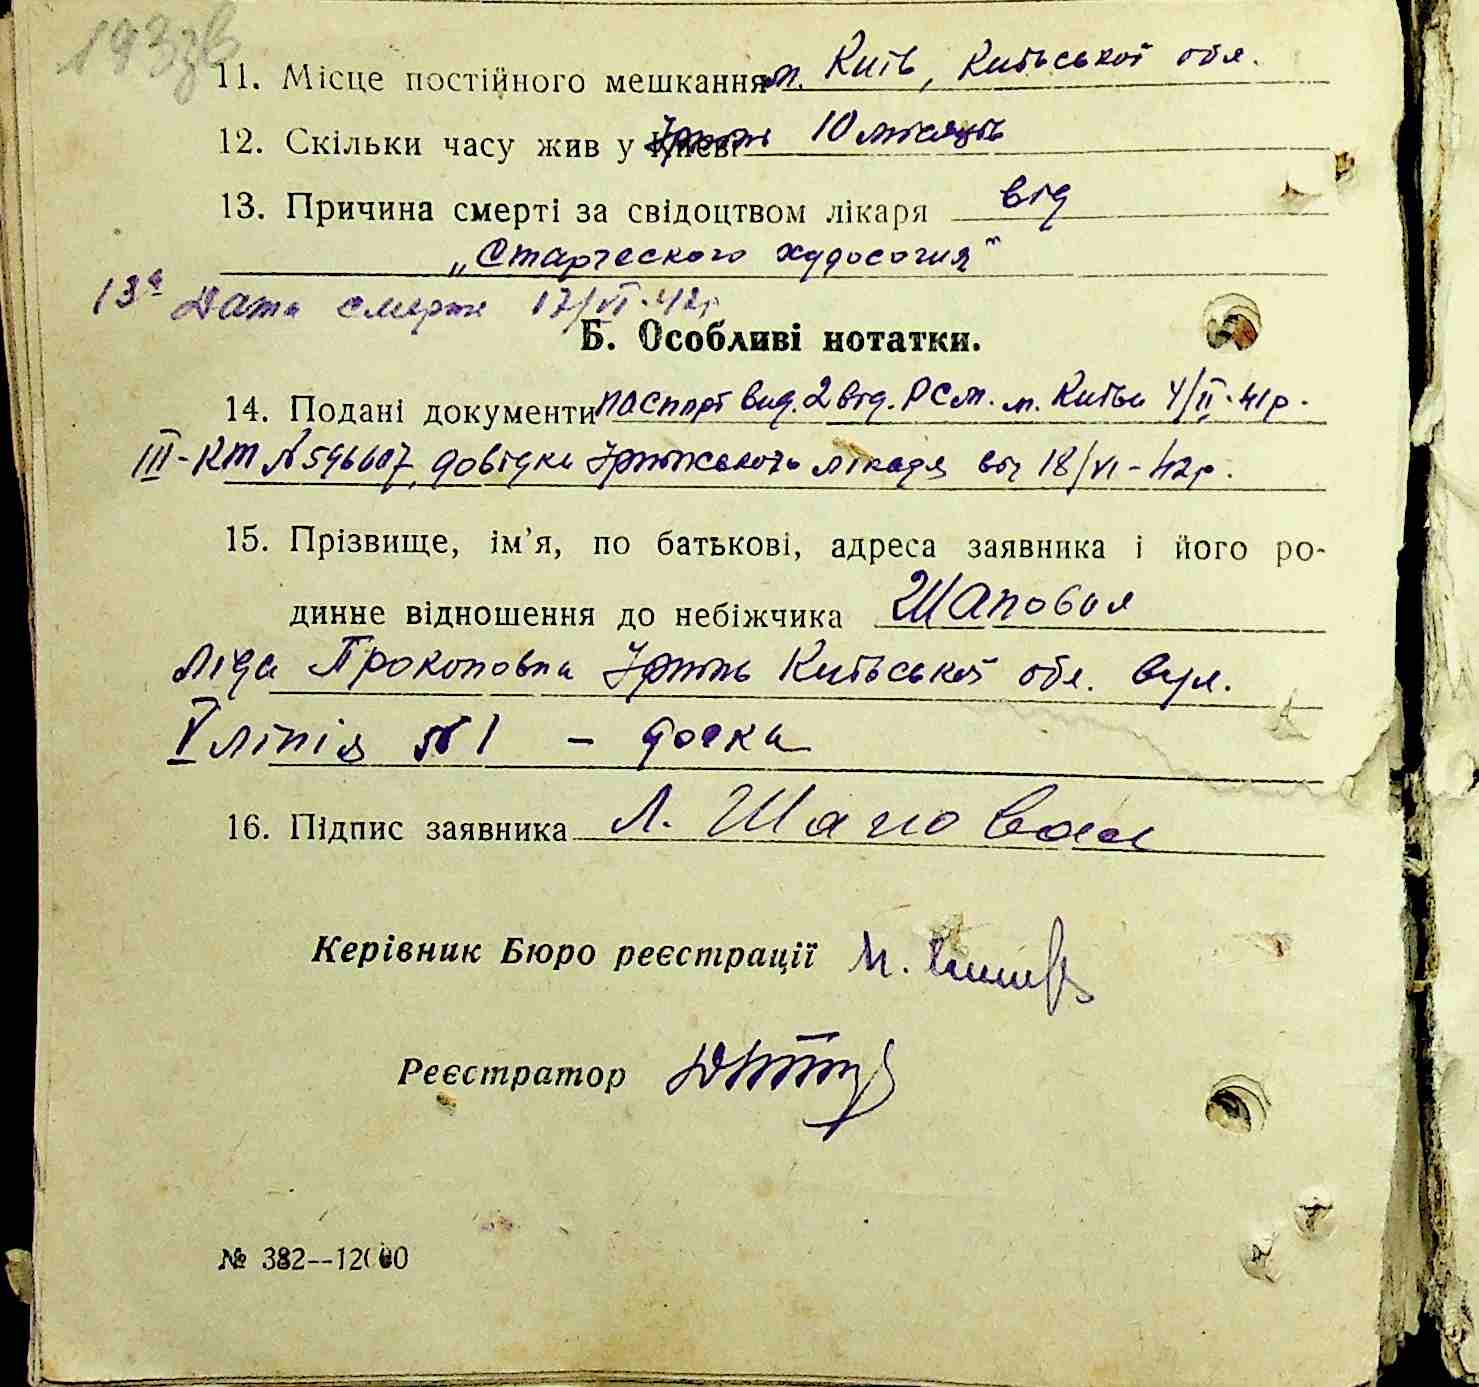 193зв
11. Місце постійного мешкання м. Київ, Київської обл.
12. Скільки часу жив у Києві Ірпінь 10 місяців
13. Причина смерті за свідоцтвом лікаря від
„Старческого худосочия"
13а Дата смерти 17/VI-42р.
Б. Особливі нотатки.
14. Подані документи паспорт вид. 2 від. РСМ. м. Київа 4/II-41р.
III-КТ № 596607, довідка Ірпінського лікаря від 18/VI-42р.
15. Прізвище, ім'я, по батькові, адреса заявника і його ро-
динне відношення до небіжчика Шаповал
Ліда Прокоповна Ірпінь Київської обл. вул.
V лінія № 1 - дочка
16. Підпис заявника Л. Шаповал
Керівник Бюро реєстрації М.
Реєстратор
№ 382--12000